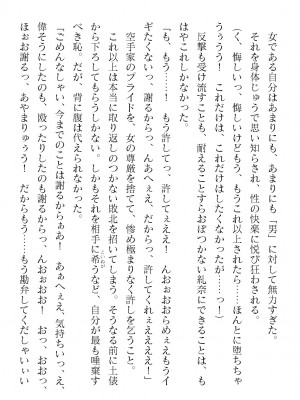 女である自分はあまりにも、あまりにも「男」に対して無力すぎた。
それを身体じゅうで思い知らされ、性の快楽に悦び狂わされる。
（く、悔しいっ、悔しいけどもう、もうこれ以上されたら……ほんとに堕ちちゃ
うぅううう！ これだけは、これだけはしたくなかったが……っ！）
反撃も受け流すことも、耐えることすらおぼつかない糺奈にできることは、も
はやこれしかなかった。
「も、もう……！ もう許してっ、許してぇええ！ んおおおらめぇえもうイ
ギたくないっ、謝るからっ、んあへぇえ、だからっ、許してくれぇえええ！」
空手家のプライドを、女の尊厳を捨てて、惨め極まりなく許しを乞うこと。
これ以上は本当に取り返しのつかない敗北を招いてしまう。そうなる前に土俵
から下ろしてもらうしかない。しかもそれを相手に希うなど、自分が最も唾棄す
べき恥。だが、背に腹は代えられなかった。
「ごめんなしゃい、今までのことは謝るからぁあ！ あぁへぇえ、気持ちいっえ、
偉そうにしたのも、殴ったりしたのも謝るからっ、んおぉおおお！ おっ、おおっ、
ほぉお謝るっ、あやまりゅぅう！ だからもう……もう勘弁してくだしゃいぃい